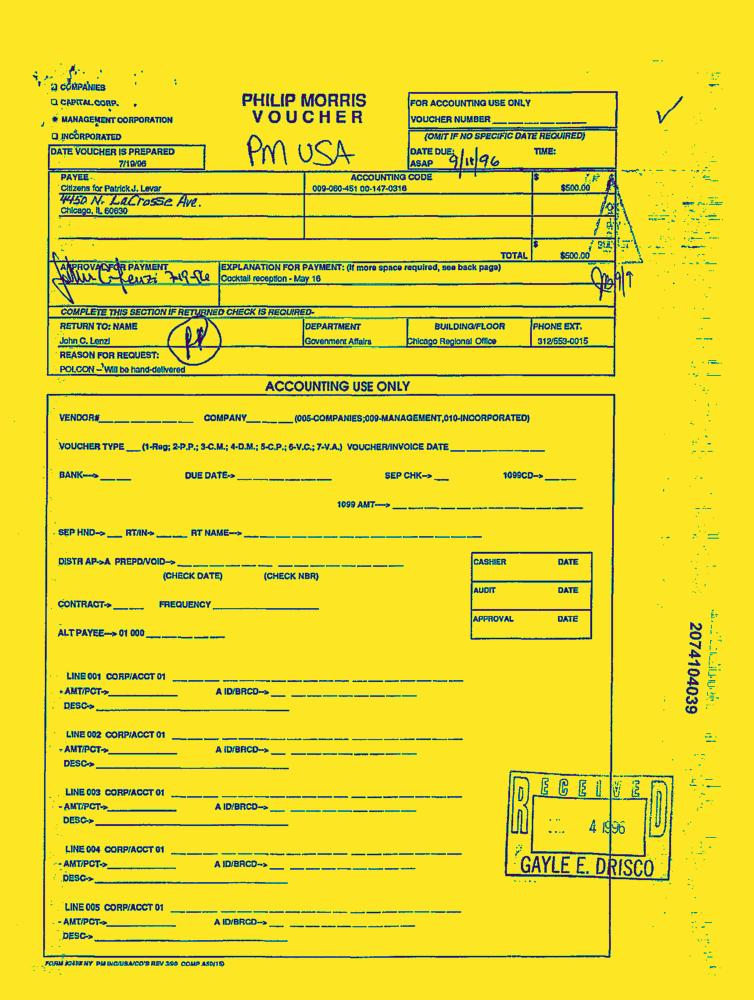 ❑ COMPANIES
❑ CAPITAL CORP.
● MANAGEMENT CORPORATION
❑ INCORPORATED
PHILIP MORRIS
VOUCHER
PM USA
FOR ACCOUNTING USE ONLY
VOUCHER NUMBER
(OMIT IF NO SPECIFIC DATE REQUIRED)
DATE DUE: TIME:
ASAP 9/11/96
DATE VOUCHER IS PREPARED
7/19/96
PAYEE ACCOUNTING CODE $
Citizens for Patrick J. Levar 009-060-451 00-147-0316 $500.00
4450 N. LaCrosse Ave.
Chicago, IL 60630
$
TOTAL $500.00
APPROVAL FOR PAYMENT EXPLANATION FOR PAYMENT: (If more space required, see back page)
7-19-96 Cocktail reception - May 16
COMPLETE THIS SECTION IF RETURNED CHECK IS REQUIRED-
RETURN TO: NAME DEPARTMENT BUILDING/FLOOR PHONE EXT.
John C. Lenzi Government Affairs Chicago Regional Office 312/553-0015
REASON FOR REQUEST:
POLCON - Will be hand-delivered
ACCOUNTING USE ONLY
VENDOR# COMPANY (005-COMPANIES;009-MANAGEMENT,010-INCORPORATED)
VOUCHER TYPE (1-Reg; 2-P.P.; 3-C.M.; 4-D.M.; 5-C.P.; 6-V.C.; 7-V.A.) VOUCHER/INVOICE DATE
BANK--> DUE DATE-> SEP CHK--> 1099CD-->
1099 AMT-->
SEP HND-> RT/IN-> RT NAME-->
DISTR AP->A PREPD/VOID-->
(CHECK DATE) (CHECK NBR)
CASHIER DATE
AUDIT DATE
APPROVAL DATE
CONTRACT-> FREQUENCY
ALT PAYEE--> 01 000
LINE 001 CORP/ACCT 01
- AMT/PCT-> A ID/BRCD-->
DESC->
LINE 002 CORP/ACCT 01
- AMT/PCT-> A ID/BRCD-->
DESC->
LINE 003 CORP/ACCT 01
- AMT/PCT-> A ID/BRCD-->
DESC->
LINE 004 CORP/ACCT 01
- AMT/PCT-> A ID/BRCD-->
DESC->
LINE 005 CORP/ACCT 01
- AMT/PCT-> A ID/BRCD-->
DESC->
RECEIVED
4 1996
GAYLE E. DRISCO
2074104039